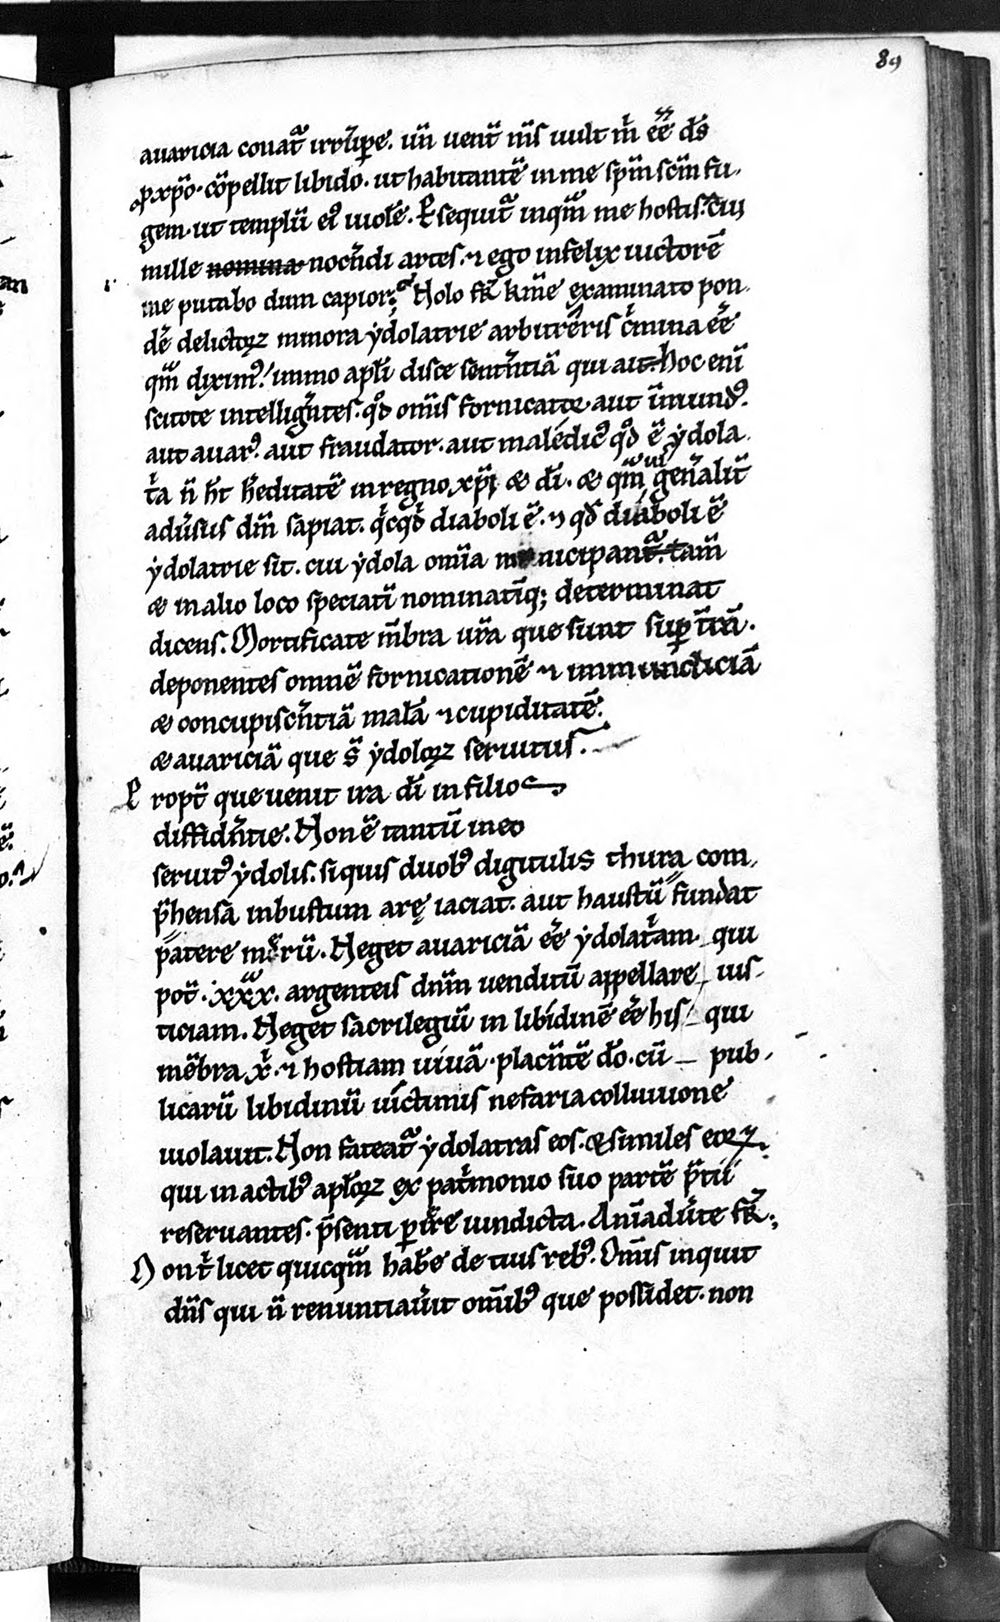 89
auaricia conat᷑ irrũpe. uñ uent̃ ñis uult m̃ ẽe d̃s
ꝓ xp̃o. cõpellit libido. ut habitantẽ in me sp̃m sc̃m fu
gem. ut templũ eiꝰ uiolẽ. Psequit᷑ inqͣm me hostis. cui
mille nomina nocñdi artes. ⁊ ego infelix uictorẽ
me putabo dum capior; Nolo fr̃ kr̃me examinato pon
dẽ delictoꝝ minora ydolatrie arbitrẽris c̃mina ẽe
qͣm diximꝰ. immo apl̃i disce sentñtiã qui ait. Hoc eni
scitote intelligñtes. qd̃ om̃is fornicator aut ĩmundꝰ.
aut auarꝰ. aut fraudator. aut maledicꝰ qd̃ ẽ ydola
t̃a ñ h̃t h̃editatẽ in regno xp̃i & d̃i. & qͣmuis geñalit̃
adũsus dñm sapiat. q̃cqd̃ diaboli ẽ. ⁊ qd̃ diaboli ẽ
ydolatrie sit. cui ydola omĩa mancipant᷑. tam̃
& in alio loco speciati nominatĩq; determinat
dicens. Mortificate m̃bra ur̃a que sunt sup̃ t̃rã.
deponentes omnẽ fornicationẽ ⁊ immundiciã
& concupiscñtiã malã ⁊ cupiditatẽ.
& auariciã que s̃ ydoloꝝ seruitus.
Propt̃ que uenit ira d̃i in filio
diffidñtie. Non ẽ tantũ in eo
seruitꝰ ydolis. si quis duobꝰ digitulis thura com
p̃hensa in bustum arę iaciat. aut haustũ fundat
patere merũ. Neget auariciã ẽe ydolat̃am. qui
pot̃ .xxx. argenteis dñm uenditũ appellare ius
ticiam. Neget sacrilegiũ in libidinẽ ẽe his qui
mẽbra x̃. ⁊ hostiam uiuã. placñtẽ d̃o. cũ pub
licarũ libidinũ uictimis nefaria colluuione
uiolauit. Non fateat᷑ ydolatras eos. & similes eoꝝ.
qui in actibꝰ apl̃oꝝ ex pat̃monio suo partẽ p̃tii
reseruantes. p̃senti pire uindicta. Animadũte fr̃;
Nont̃ licet quicqͣm hab̃e de tuis rebꝰ. Om̃is inquit
dñs qui ñ renuntiaũit om̃ibꝰ que possidet. non